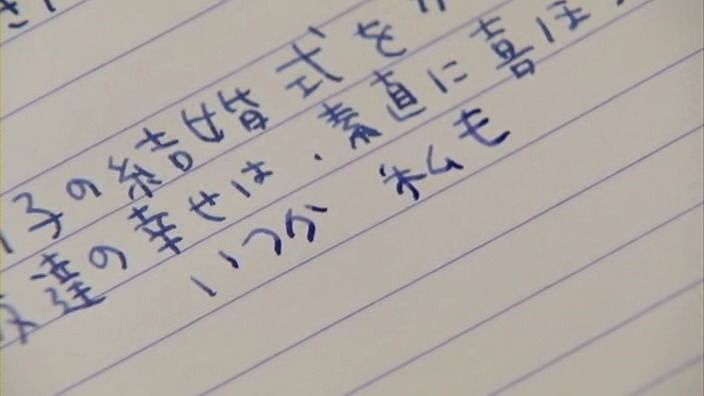 子の結婚式を
友達の幸せは、素直に喜ぼ
いつか 私も